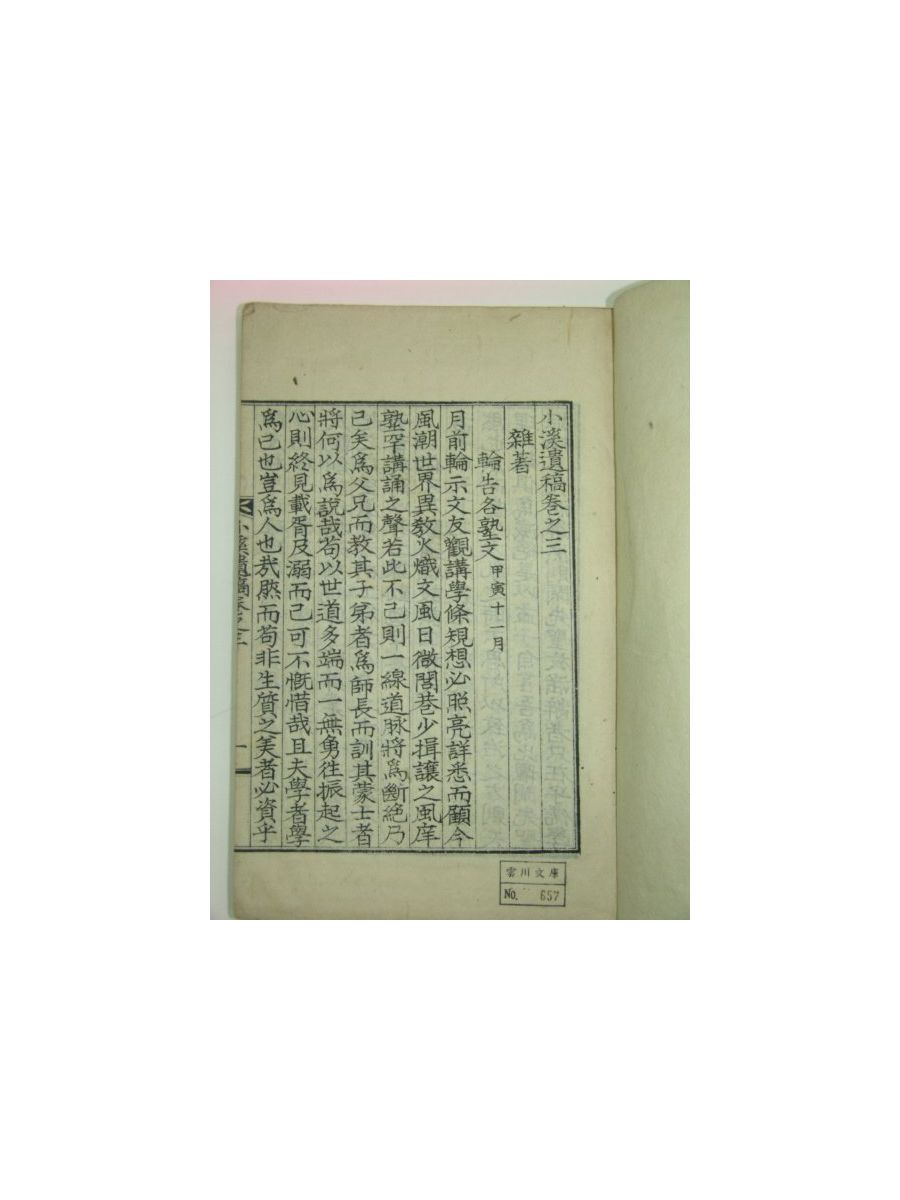 小溪遺稿卷之三
雜著
輪告各塾文 甲寅十一月
月前輪示文友觀講學條規想必照亮詳悉而顧今
風潮世界異敎火熾文風日微閭巷少揖讓之風庠
塾罕講誦之聲若此不已則一線道脉將爲斷絶乃
已矣爲父兄而教其子弟者爲師長而訓其蒙士者
將何以爲說哉苟以世道多端而一無勇往振起之
心則終見載胥及溺而已可不慨惜哉且夫學者學
爲己也豈爲人也哉然而苟非生質之美者必資乎
小溪遺稿卷之三
一
雲川文庫
No. 657